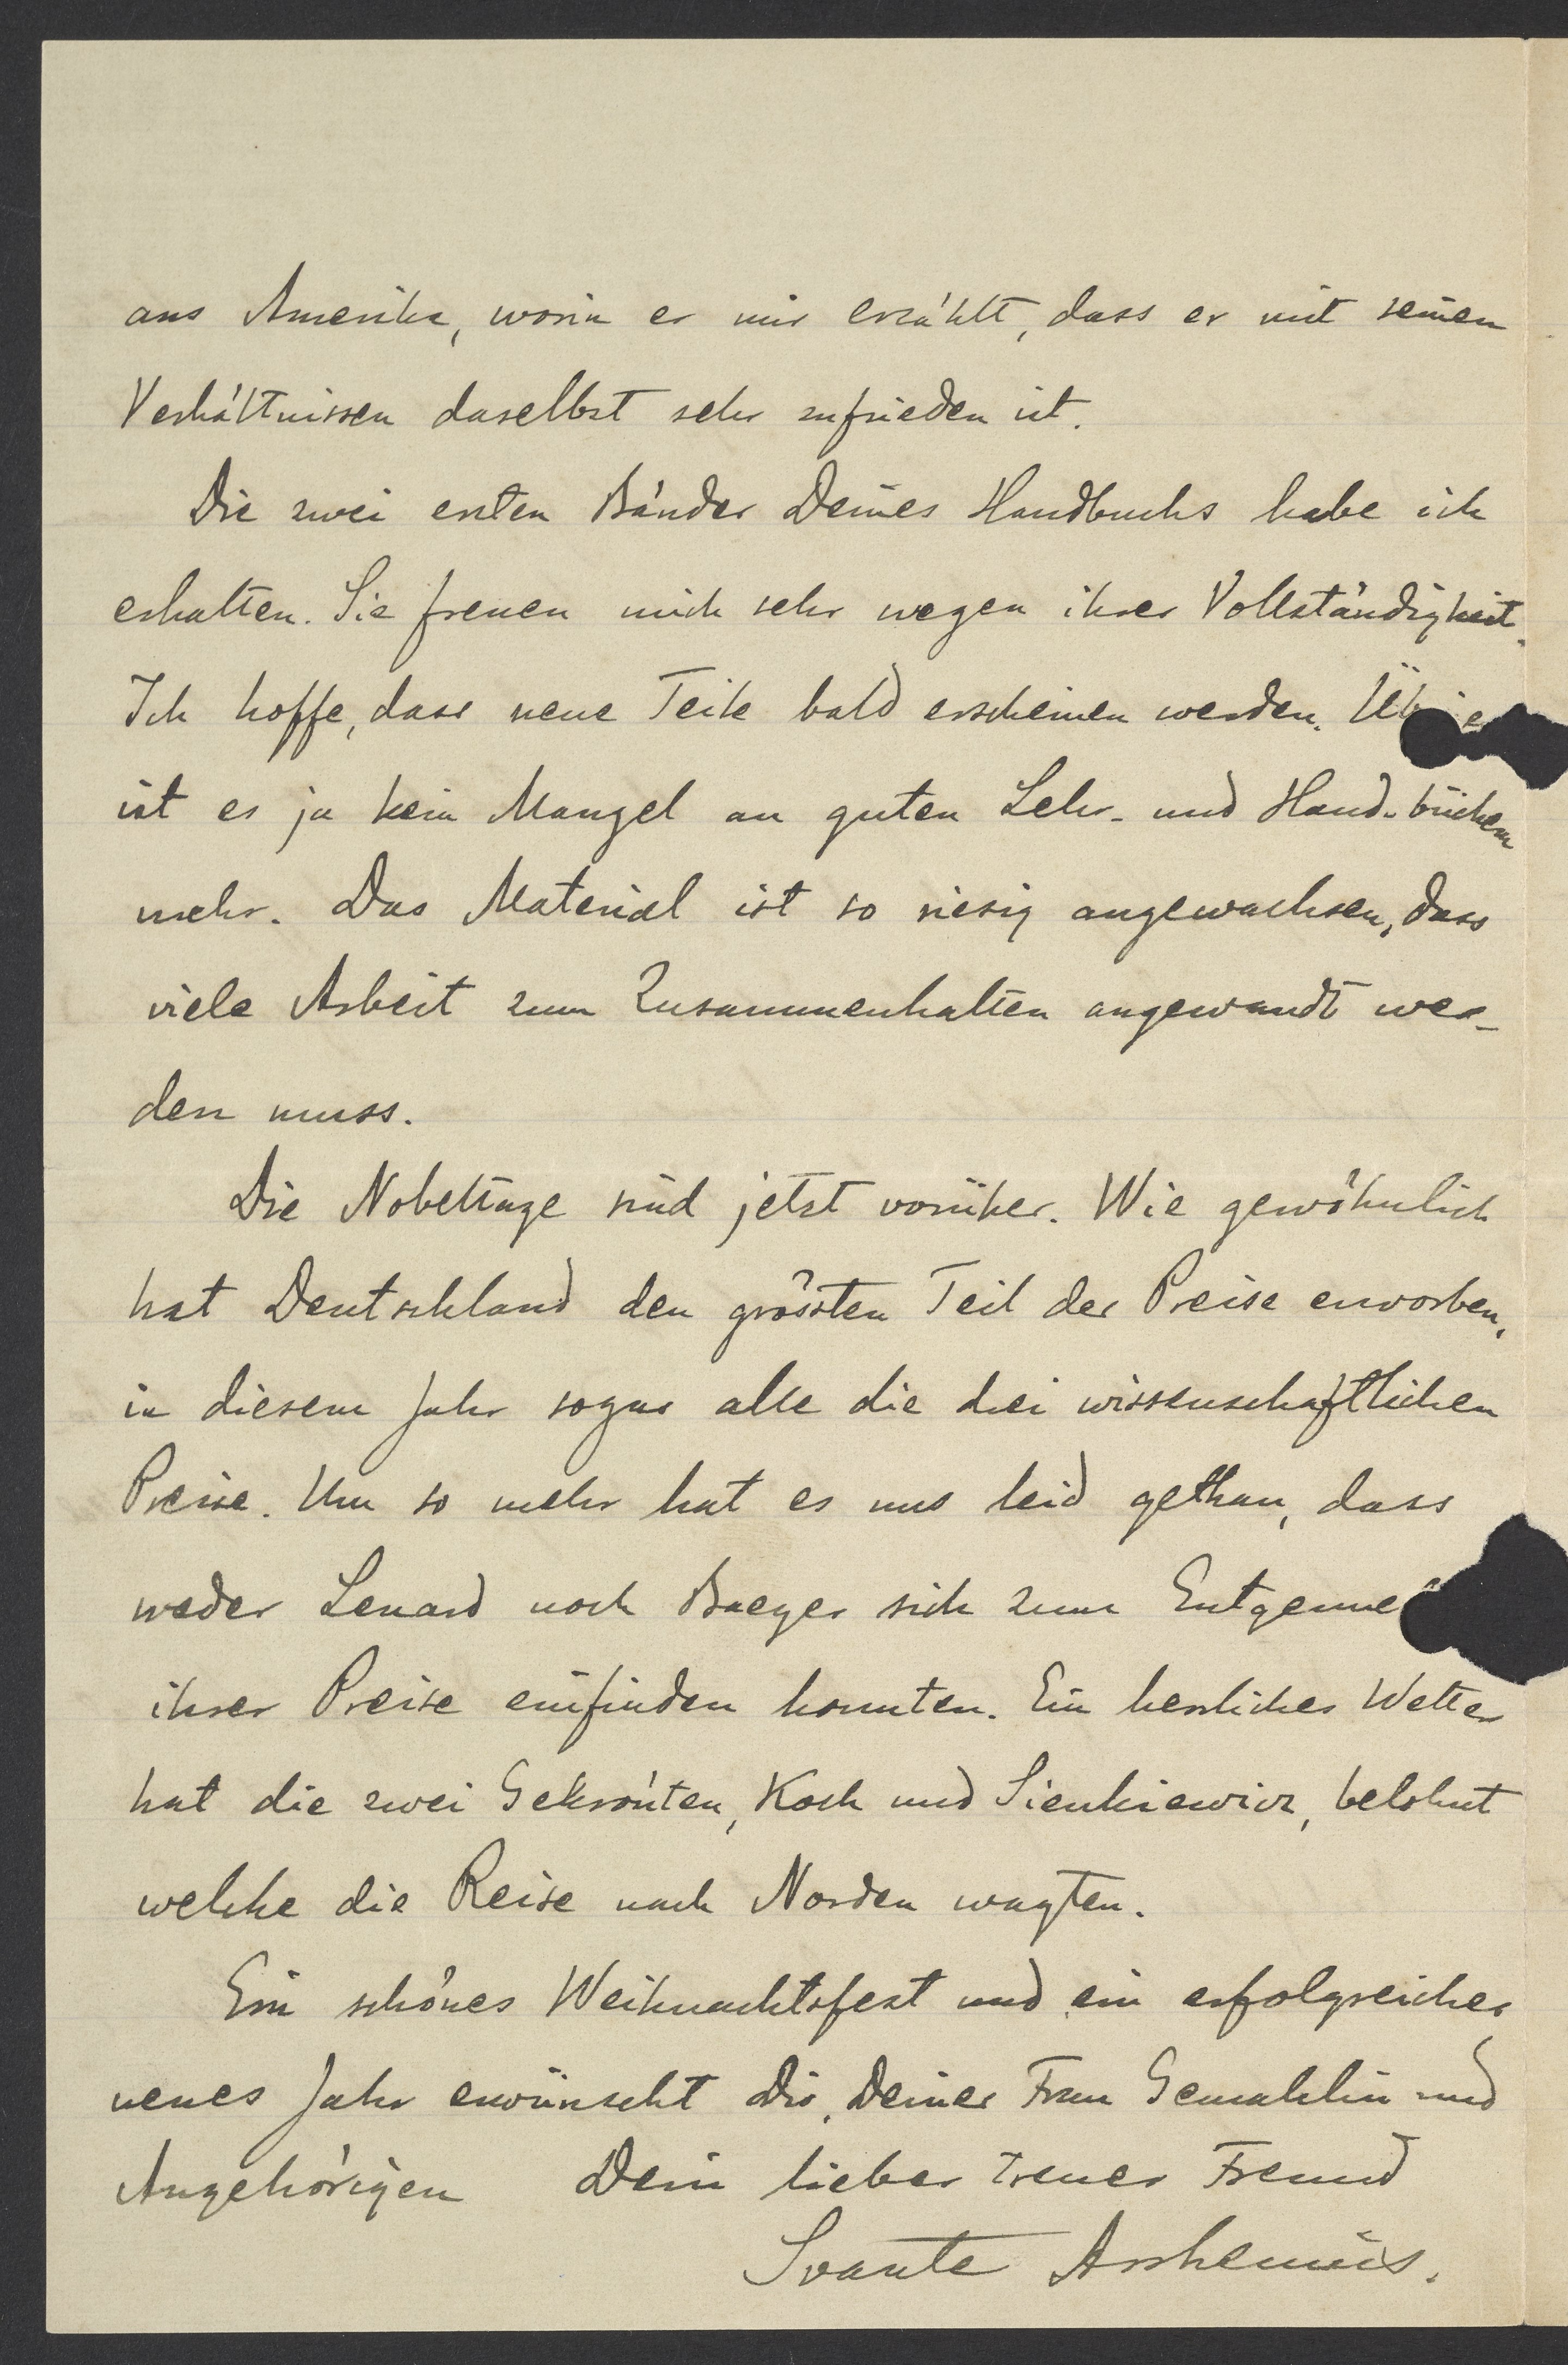 aus Amerika, worin er mir erzählt, dass er mit seinen
Verhältnissen daselbst sehr zufrieden ist.
Die zwei ersten Bänder Deines Handbuchs habe ich
erhalten. Sie freuen mich sehr wegen ihrer Vollständigkeit.
Ich hoffe, dass neue Teile bald erscheinen werden.
ist es ja kein Mangel an guten Lehr- und Hand-büchern
mehr. Das Material ist so riesig angewachsen, dass
viele Arbeit zum Zusammenhalten angewandt wer-
den muss.
Die Nobeltage sind jetzt vorüber. Wie gewöhnlich
hat Deutschland den grössten Teil der Preise erworben,
in diesem Jahr sogar alle die drei wissenschaftlichen
Preise. Um so mehr hat es uns leid gethan, dass
weder Lenard noch Baeyer sich zum Entgegenne
ihrer Preise einfinden konnten. Ein herrliches Wetter
hat die zwei Gekrönten, Koch und Sienkiewicz, belohnt
welche die Reise nach Norden wagten.
Ein schönes Weihnachtsfest und ein erfolgreiches
neues Jahr erwünscht Dir, Deiner Frau Gemahlin und
Angehörigen Dein lieber treuer Freund
Svante Arrhenius.